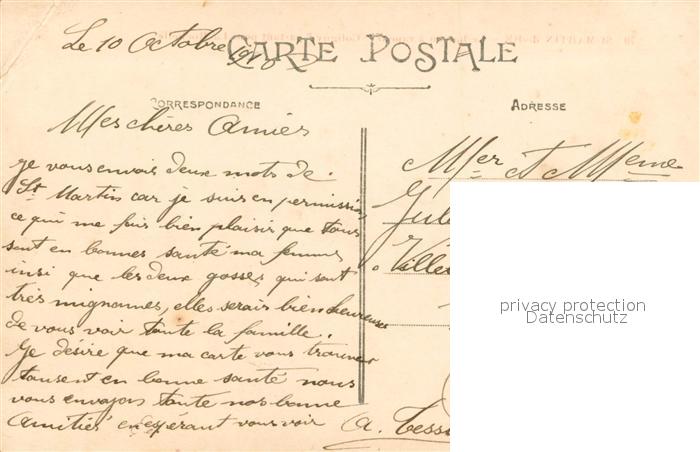 Le 10 Octobre 1918
CARTE POSTALE
CORRESPONDANCE
ADRESSE
Mes chères Amies
Je vous envois deux mots de
St Martin car je suis en permission
ce qui me fais bien plaisir que tous
sont en bonnes santé ma femme
insi que les deux gosses qui sont
très mignonnes, elles serais bien heureuses
de vous voir toute la famille.
Je désire que ma carte vous trouve
tousent en bonne santé nous
vous envoyons toute nos bonne
Amitiés en espérant vous voir
Mer et Meme
Jule
Ville
A. Tess
privacy protection
Datenschutz